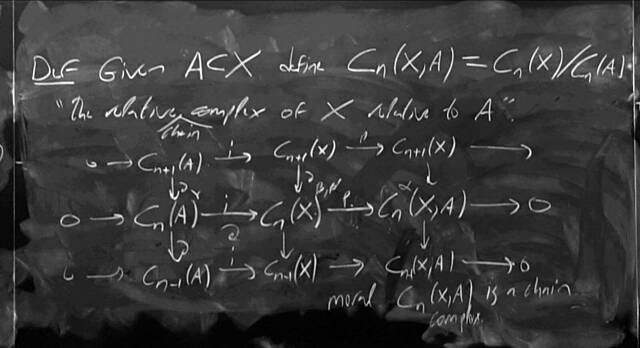 Def Given A⊂X define Cₙ(X,A) = Cₙ(X)/Cₙ(A).
"The relative complex of X relative to A".
chain
0 → Cₙ₊₁(A) →ⁱ Cₙ₊₁(X) →ᵖ Cₙ₊₁(X) →
↓∂ ↓∂ ↓
0 → Cₙ(A) →ⁱ Cₙ(X) →ᵖ Cₙ(X,A) → 0
↓∂ ↓ ↓
0 → Cₙ₋₁(A) →ⁱ Cₙ₋₁(X) → Cₙ₋₁(X,A) → 0
moral Cₙ(X,A) is a chain
complex.